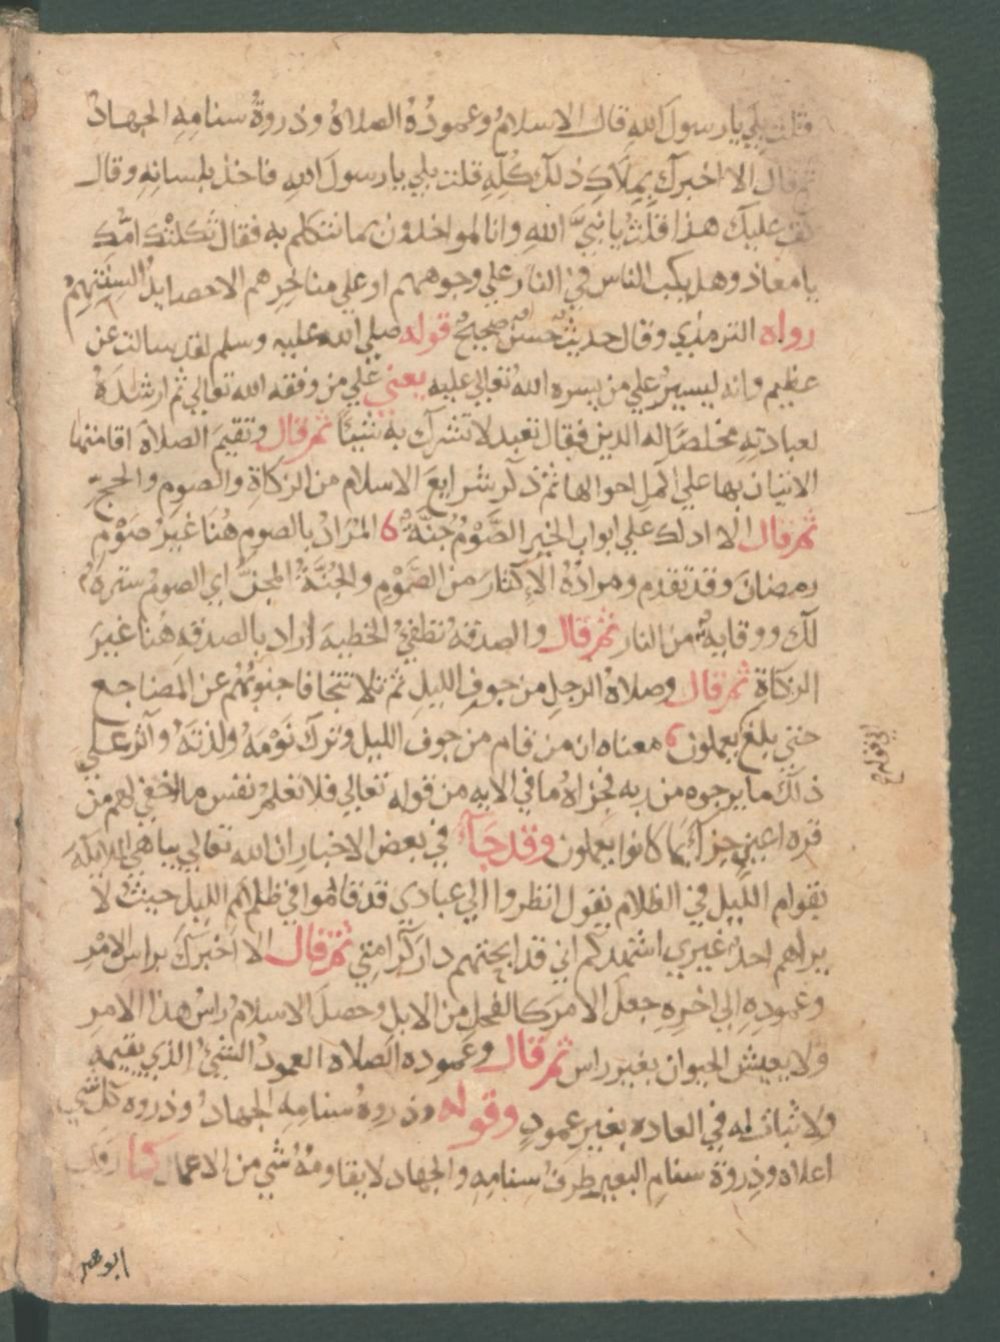 قلت بلي يا رسول الله قال الاسلام وعمودُهُ الصلاةُ وذروةُ سنامِهِ الجهادُ
ثم قال الا اخبرك بِمِلَاكِ ذلك كُلِّهِ قلت بلي يا رسول الله فاخذ بلسانِهِ وقال
كف عليك هذا قلتُ يا نبيَّ الله وانا لمواخذون بما نتكلم به فقال ثكلتك امك
يا معاذ وهل يكب الناس في النار علي وجوههم او علي مناخرهم الا حصايدُ السنتِهِمْ
رواه الترمذي وقال حديث حسن صحيح قوله صلي الله عليه وسلم لقد سالت عن
عظيم وانه ليسيرٌ علي من يسره الله تعالي عليه يعني علي من وفقه الله تعالي ثم ارشدَهُ
لعبادتِهِ مخلصًا له الدين فقال تعبد لا تشرك به شيئًا ثم قال وتقيمَ الصلاة اقامتها
الاتيان بها علي اكمل احوالها ثم ذكر شرايعَ الاسلام من الزكاةِ والصومِ والحجِّ
ثم قال الا ادلك علي ابواب الخير الصَّوْمُ جُنَّةٌ المرادُ بالصومِ هُنا غيرُ صَوْمِ
رمضانَ وقد تقدم ومرادُهُ الاِكثارَ من الصَّوْمِ والجُنَّةُ المِجَنُّ اي الصومُ سترةٌ
لك ووقايةٌ من النار ثم قال والصدقة تطفيُ الخطيةَ اراد بالصدقةِ هُنا غيرَ
الزكاةِ ثم قال وصلاةُ الرجلِ من جوفِ الليلِ ثم تلا تتجافا جنوبُهُم عن المضاجع
حتي بلغ يعملون معناه ان من قام من جوف الليل وترك نَوْمَهُ ولذتَهُ وآثر علي
ذلك ما يرجوه من ربه فجزاهُ ما في الايه من قوله تعالي فلا تعلمُ نفس ما اخفي لهم من
قرة اعين جزآءً بما كانوا يعملون وقد جَآءَ في بعض الاخبار ان الله تعالي يباهي الملايكَةَ
بقوام الليل في الظلام يقول انظروا الي عبادي قد قاموا في ظلم الليل حيثُ لا
يراهم احدٌ غيري اشهدكم اني قد ابحتهم دار كرامتي ثم قال الا اخبرك براس الامرِ
وعمودِهِ الي اخرِهِ جعلَ الامر كالفحلِ من الابل وحصلَ الاسلامُ راسَ هذا الامرِ
ولا يعيش الحيوان بغير راس ثم قال وعموده الصلاة العمودُ الشيءُ الذي يقيمه
ولا ثبات له في العادة بغير عمودٍ وقوله وذروةُ سنامِهِ الجهادُ وذروة كل شيءٍ
اعلاه وذروة سنامِ البعيرِ طرفُ سنامِهِ والجهاد لا يقاومهُ شي من الاعمال كما
ابو هر